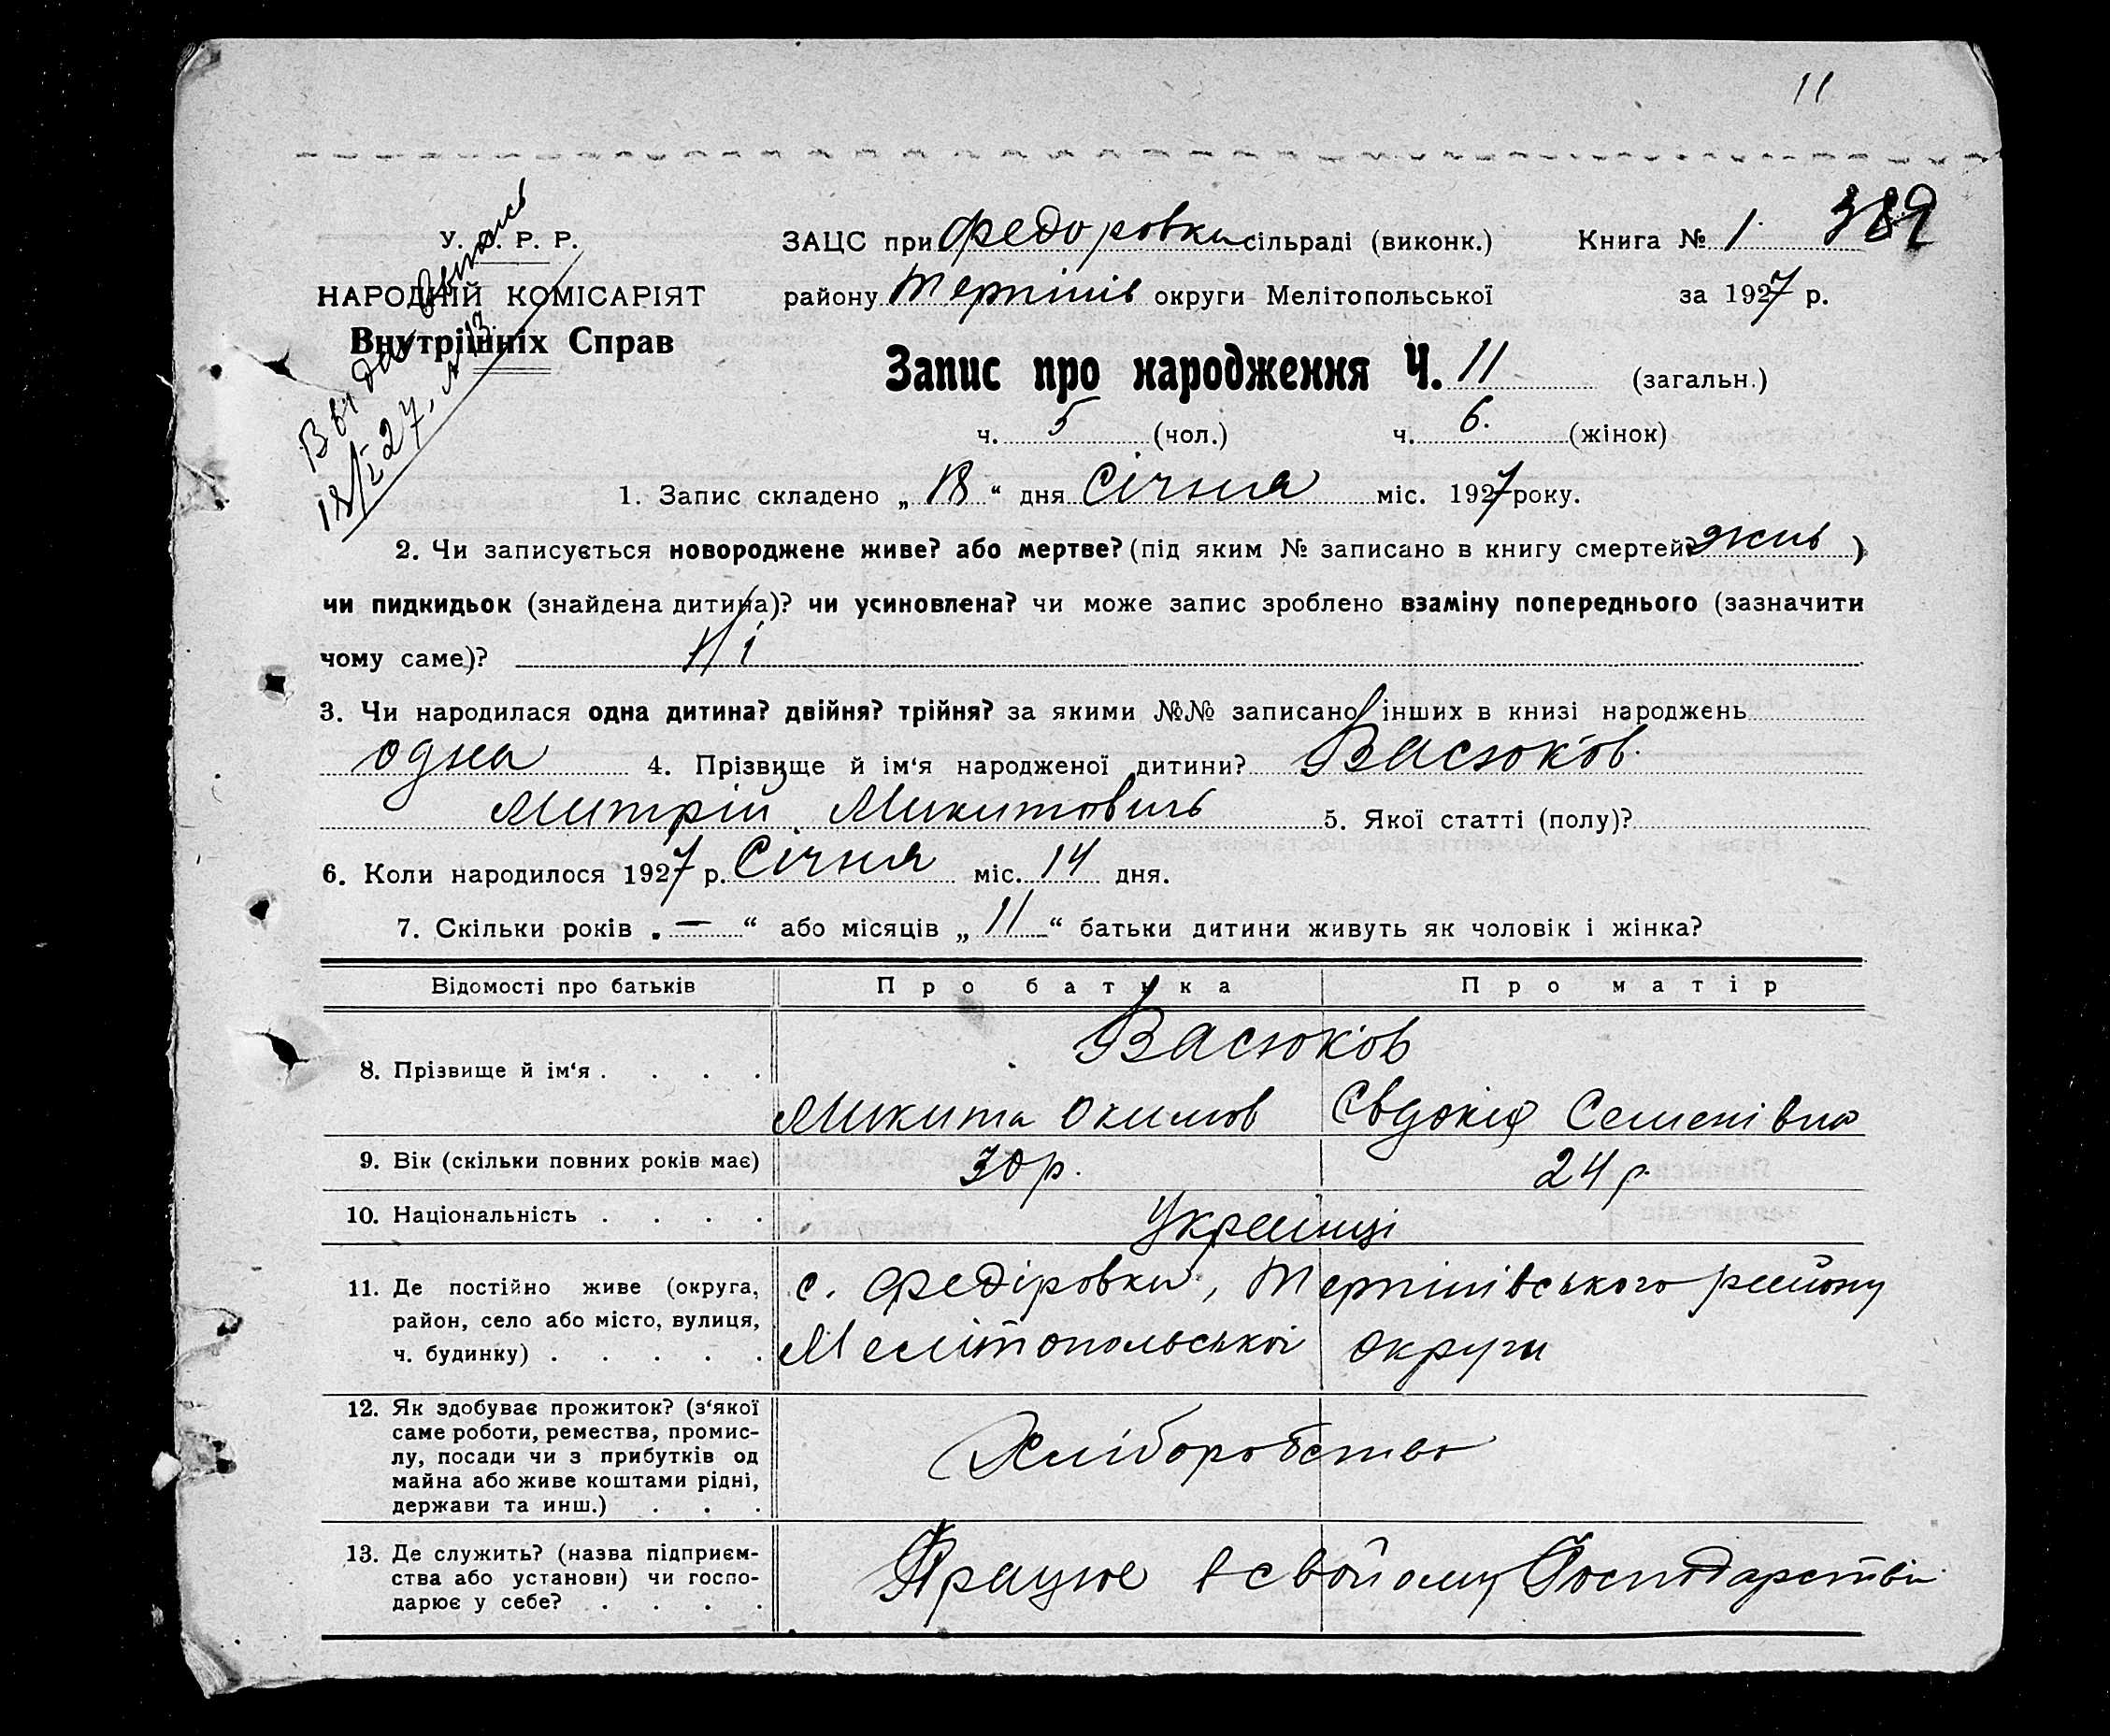 11
У. С. Р. Р.
НАРОДНІЙ КОМІСАРІЯТ
Внутрішніх Справ
18/I 27, № 13.
ЗАЦС при Федоровки сільраді (виконк.) Книга № 1. 389
району Терпінів округи Мелітопольської за 1927 р.
Запис про народження Ч. 11 (загальн.)
ч. 5 (чол.) ч. 6. (жінок)
1. Запис складено „ 18 “ дня Січня міс. 1927 року.
2. Чи записується новороджене живе? або мертве? (під яким № записано в книгу смертей? жив )
чи пидкидьок (знайдена дитина)? чи усиновлена? чи може запис зроблено взаміну попереднього (зазначити
чому саме)? Ні
3. Чи народилася одна дитина? двійня? трійня? за якими №№ записано інших в книзі народжень
одна 4. Прізвище й ім‘я народженої дитини? Васюков.
Митрій Микитовичь 5. Якої статті (полу)?
6. Коли народилося 1927 р. Січня міс. 14 дня.
7. Скільки років „ — “ або місяців „ 11 “ батьки дитини живуть як чоловік і жінка?
Відомості про батьків Про батька Про матір
Васюков
8. Прізвище й ім‘я . . . .
Микита Окимов Євдокія Семенівна
9. Вік (скільки повних років має) 30 р. 24 р.
10. Національність . . . . Украинці
11. Де постійно живе (округа, с. Федіровки, Терпінівського району
район, село або місто, вулиця,
ч. будинку) . . . . . Мелітопольської округи
12. Як здобуває прожиток? (з‘якої
саме роботи, ремества, промис-
лу, посади чи з прибутків од Хліборобство
майна або живе коштами рідні,
держави та инш.) . . .
13. Де служить? (назва підприєм-
ства або установи) чи госпо- Працює в свойому Господарстві
дарює у себе? . . . .